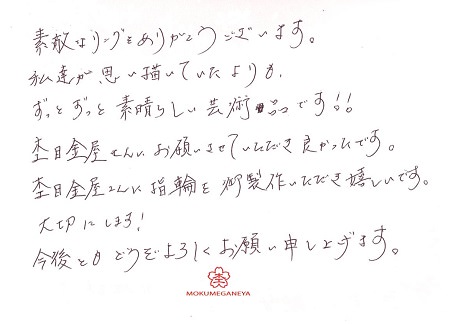 素敵なリングをありがとうございます。
私達が思い描いていたよりも、
ずっとずっと素晴らしい芸術品です!!
杢目金屋さんにお願いさせていただき良かったです。
杢目金屋さんに指輪を御製作いただき嬉しいです。
大切にします!
今後ともどうぞよろしくお願い申し上げます。
MOKUMEGANEYA